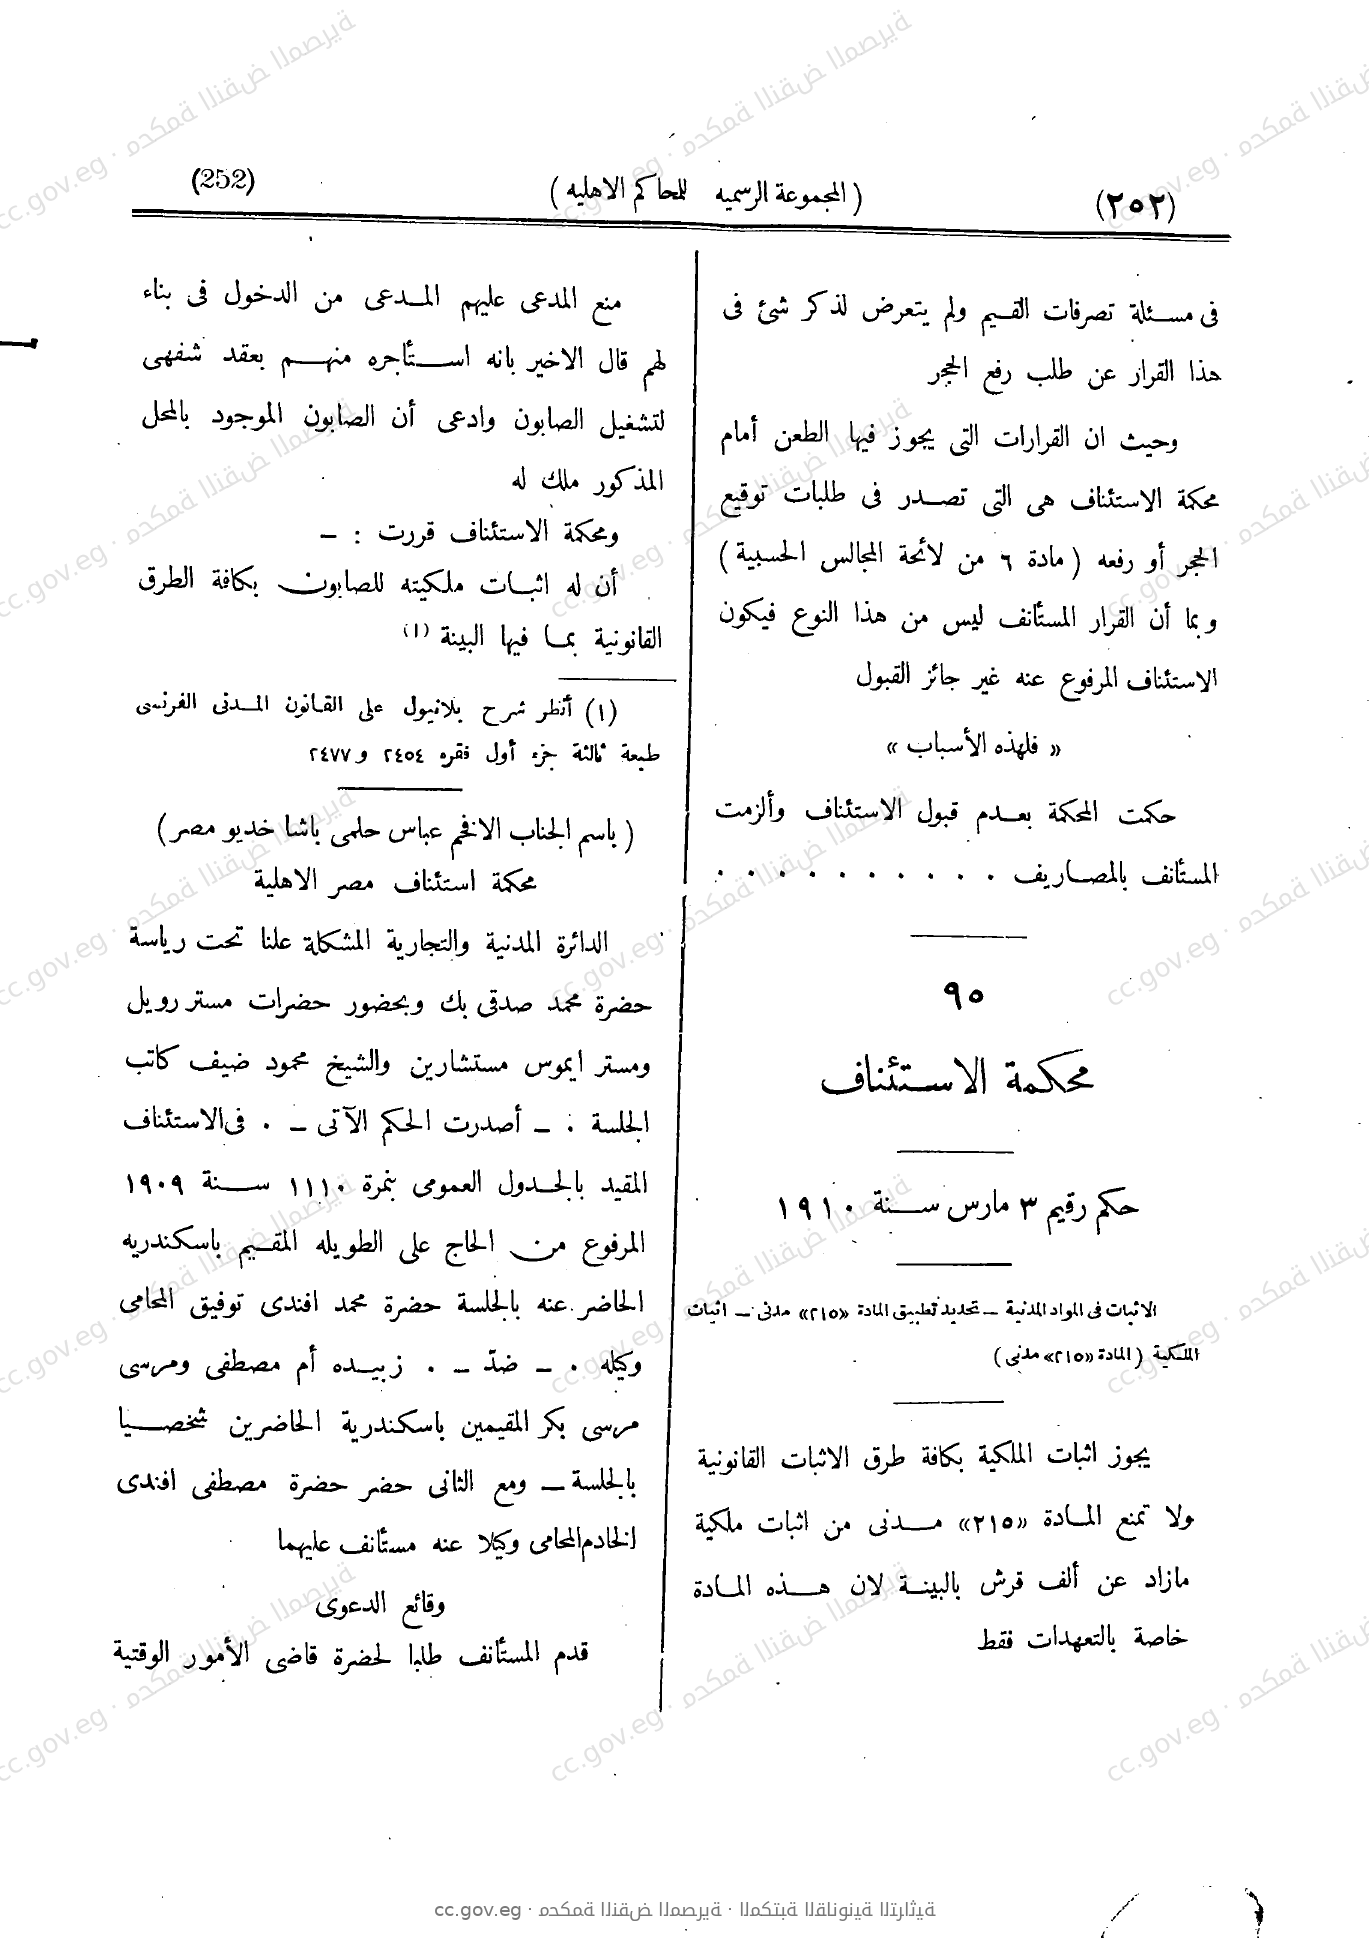 (٢٥٢)
( المجموعة الرسميه للمحاكم الاهليه )
(252)
فى مسئلة تصرفات القيم ولم يتعرض لذكر شئ فى
هذا القرار عن طلب رفع الحجر
وحيث ان القرارات التى يجوز فيها الطعن أمام
محكمة الاستئناف هى التى تصدر فى طلبات توقيع
الحجر أو رفعه ( مادة ٦ من لائحة المجالس الحسبية )
وبما أن القرار المستأنف ليس من هذا النوع فيكون
الاستئناف المرفوع عنه غير جائز القبول
« فلهذه الأسباب »
حكمت المحكمة بعدم قبول الاستئناف وألزمت
المستأنف بالمصاريف . . . . . . . . . .
٩٥
محكمة الاستئناف
حكم رقيم ٣ مارس سنة ١٩١٠
الاثبات فى المواد المدنية – تحديد تطبيق المادة «٢١٥» مدنى – اثبات
الملكية ( المادة «٢١٥» مدنى )
يجوز اثبات الملكية بكافة طرق الاثبات القانونية
ولا تمنع المادة «٢١٥» مدنى من اثبات ملكية
مازاد عن ألف قرش بالبينة لان هذه المادة
خاصة بالتعهدات فقط
منع المدعى عليهم المدعى من الدخول فى بناء
لهم قال الاخير بانه استأجره منهم بعقد شفهى
لتشغيل الصابون وادعى أن الصابون الموجود بالمحل
المذكور ملك له
ومحكمة الاستئناف قررت : –
أن له اثبات ملكيته للصابون بكافة الطرق
القانونية بما فيها البينة (١)
(١) أنظر شرح بلانيول على القانون المدنى الفرنسى
طبعة ثالثة جزء أول فقره ٢٤٥٤ و ٢٤٧٧
( باسم الجناب الافخم عباس حلمى باشا خديو مصر )
محكمة استئناف مصر الاهلية
الدائرة المدنية والتجارية المشكلة علنا تحت رياسة
حضرة محمد صدقى بك وبحضور حضرات مستر رويل
ومستر ايموس مستشارين والشيخ محمود ضيف كاتب
الجلسة . – أصدرت الحكم الآتى – . فى الاستئناف
المقيد بالجدول العمومى بنمرة ١١١٠ سنة ١٩٠٩
المرفوع من الحاج على الطويله المقيم باسكندريه
الحاضر عنه بالجلسة حضرة محمد افندى توفيق المحامى
وكيله . – ضدّ – . زبيده أم مصطفى ومرسى
مرسى بكر المقيمين باسكندرية الحاضرين شخصيا
بالجلسة – ومع الثانى حضر حضرة مصطفى افندى
الخادم المحامى وكيلا عنه مستأنف عليهما
وقائع الدعوى
قدم المستأنف طلبا لحضرة قاضى الأمور الوقتية
cc.gov.eg · محكمة النقض المصرية · المكتبة القانونية التراثية